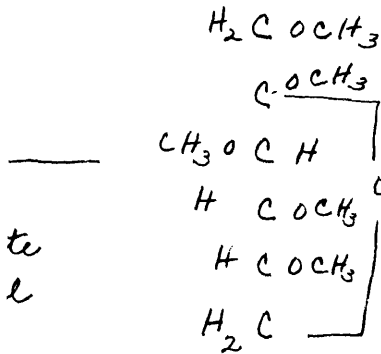 H2 C OCH3
C OCH3
CH3O C H
H C OCH3
te
H C OCH3
l
H2 C